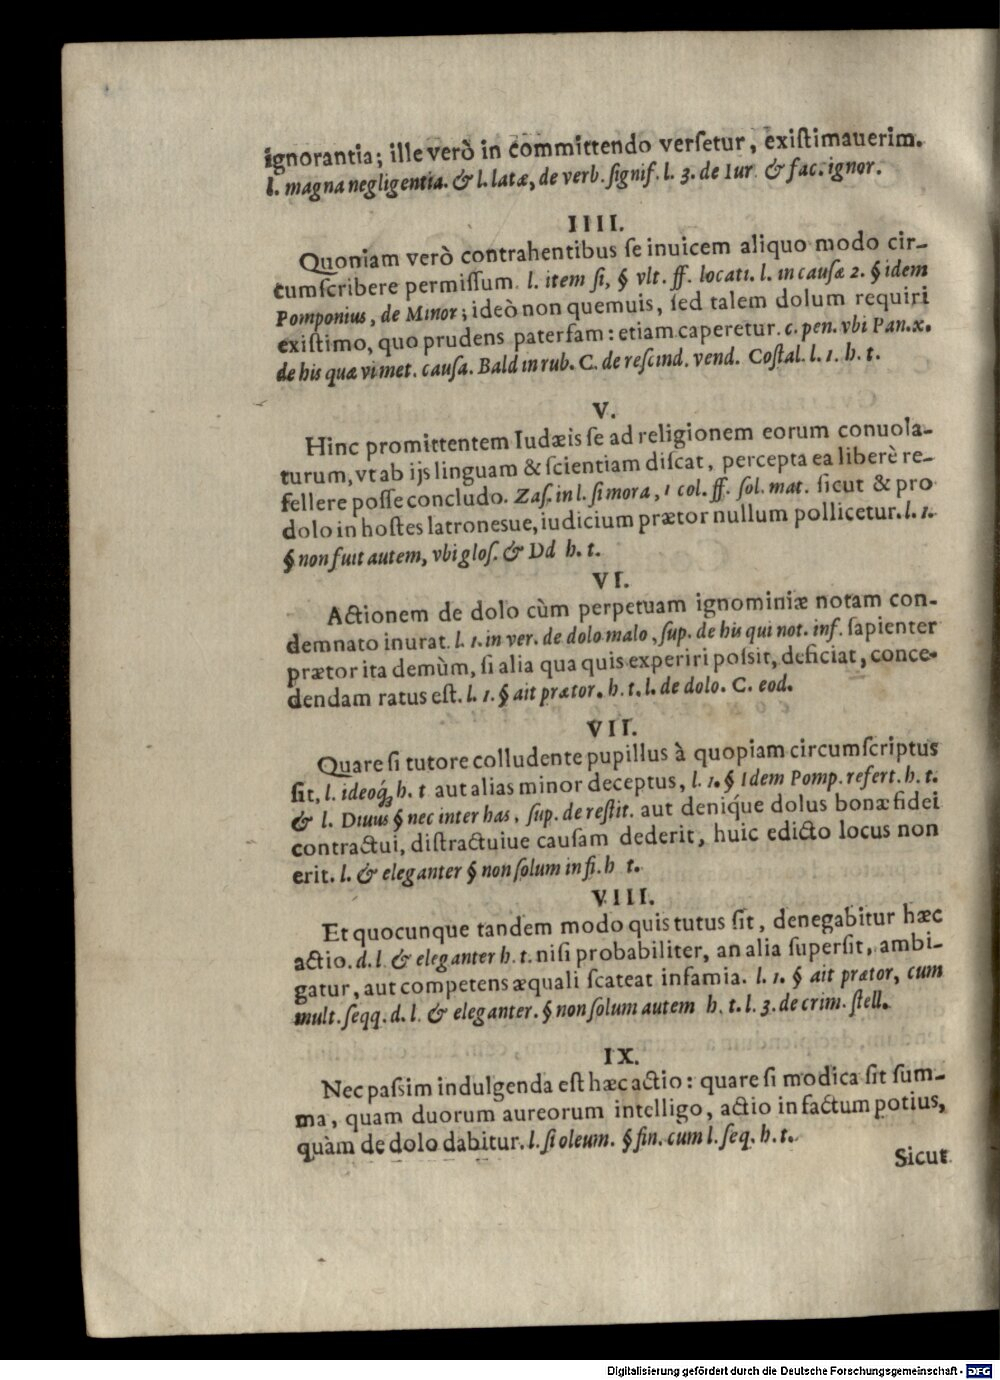 ignorantia; ille verò in committendo verſetur, exiſtimauerim.
l. magna negligentia. & l. latæ, de verb. ſignif. l. 3. de Iur & fac. ignor.
IIII.
Quoniam verò contrahentibus ſe inuicem aliquo modo cir-
cumſcribere permiſſum. l. item ſi, § vlt. ff. locati. l. in cauſæ 2. § idem
Pomponius, de Minor; ideò non quemuis, ſed talem dolum requiri
exiſtimo, quo prudens paterfam: etiam caperetur. c. pen. vbi Pan. x.
de his quæ vi met. cauſa. Bald in rub. C. de reſcind. vend. Coſtal. l. 1. h. t.
V.
Hinc promittentem Iudæis ſe ad religionem eorum conuola-
turum, vt ab ijs linguam & ſcientiam diſcat, percepta ea liberè re-
fellere poſſe concludo. Zaſ. in l. ſi mora, 1 col. ff. ſol. mat. ſicut & pro
dolo in hoſtes latronesue, iudicium prætor nullum pollicetur. l. 1.
§ non fuit autem, vbi gloſ. & Dd h. t.
VI.
Actionem de dolo cùm perpetuam ignominiæ notam con-
demnato inurat. l. 1. in ver. de dolo malo, ſup. de his qui not. inf. ſapienter
prætor ita demùm, ſi alia qua quis experiri poſsit, deficiat, conce-
dendam ratus eſt. l. 1. § ait prætor. h. t. l. de dolo. C. eod.
VII.
Quare ſi tutore colludente pupillus à quopiam circumſcriptus
ſit, l. ideoq́ꝫ h. t aut alias minor deceptus, l. 1. § Idem Pomp. refert. h. t.
& l. Diuus § nec inter has, ſup. de reſtit. aut deniq́ue dolus bonæ fidei
contractui, diſtractuiue cauſam dederit, huic edicto locus non
erit. l. & eleganter § non ſolum in fi. h t.
VIII.
Et quocunque tandem modo quis tutus ſit, denegabitur hæc
actio. d. l & eleganter h. t. niſi probabiliter, an alia ſuperſit, ambi-
gatur, aut competens æquali ſcateat infamia. l. 1. § ait prætor, cum
mult. ſeqq. d. l & eleganter. § non ſolum autem h. t. l. 3. de crim. ſtell.
IX.
Nec paſsim indulgenda eſt hæc actio: quare ſi modica ſit ſum-
ma, quam duorum aureorum intelligo, actio in factum potius,
quàm de dolo dabitur. l. ſi oleum. § fin. cum l. ſeq. h. t.
Sicut
Digitalisierung gefördert durch die Deutsche Forschungsgemeinschaft - DFG